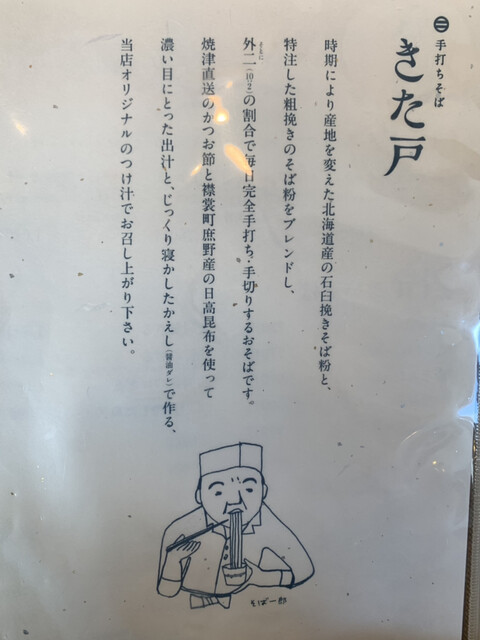 手打ちそば
きた戸
時期により産地を変えた北海道産の石臼挽きそば粉と、
特注した粗挽きのそば粉をブレンドし、
外二(10:2)の割合で毎日完全手打ち・手切りするおそばです。
焼津直送のかつお節と襟裳町庶野産の日高昆布を使って
濃い目にとった出汁と、じっくり寝かしたかえし(醤油ダレ)で作る、
当店オリジナルのつけ汁でお召し上がり下さい。
そば一郎